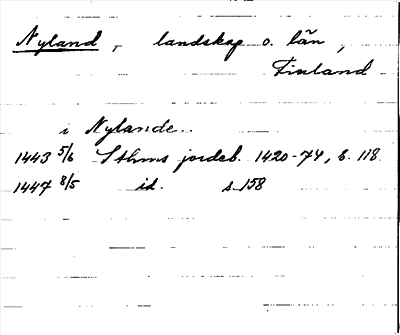 Nyland, landskap o. län,
Finland
i Nylande..
1443 5/6 Sthms jordeb. 1420-74, s. 118
1447 8/5 id. s. 158